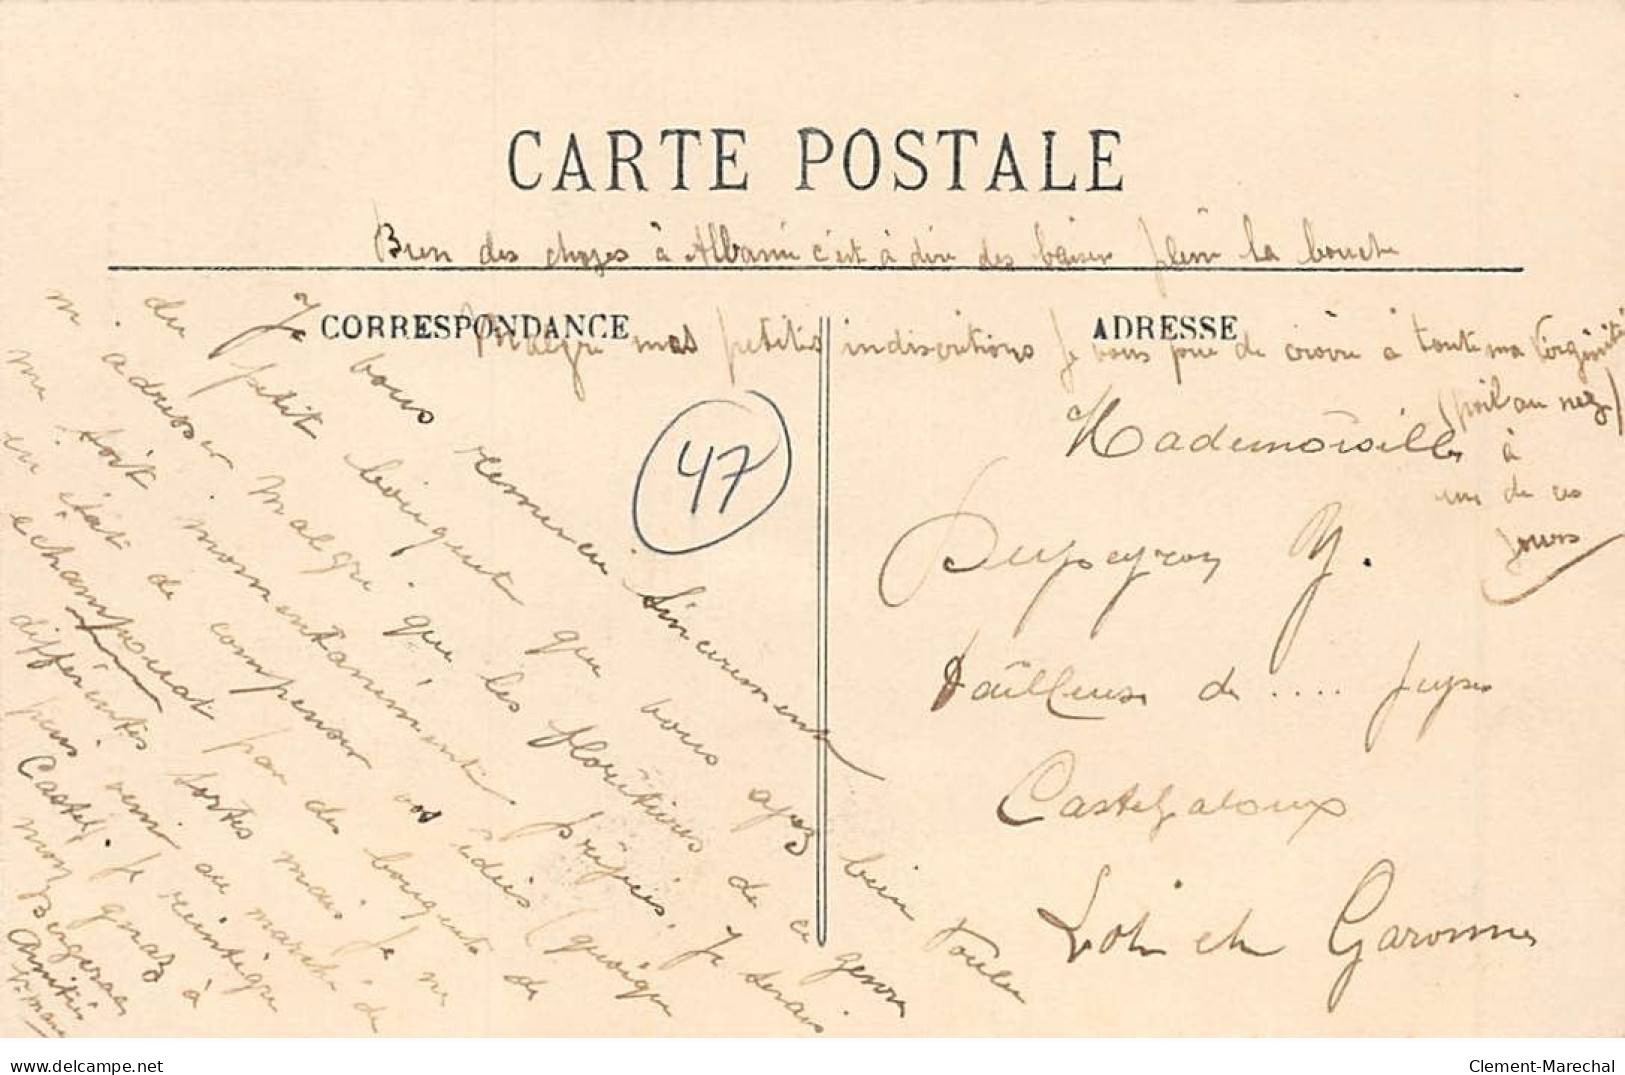 CARTE POSTALE
Bien des choses à Albanie c'est à dire des baisers plein la bouche
CORRESPONDANCE
ADRESSE
Malgré mes petites indiscrétions Je vous prie de croire à toute ma virginité
(poil au nez)
à
un de ces
jours
Je vous remercie Sincèrement bien
du petit bouquet que vous avez voulu
m'adresser malgré que les floritions de ce genre
me soit momentanément prohibées. Je serais
en état de compenser vos idées (quoique
échampouat par des bouquets de
différentes sortes mais Je ne
puis venir au marché de
Castelj. Je réintègre
mon à
Bergerac
Amitiés
47
Mademoiselle
Dupeyron Y.
Tailleuse de .... jupes
Casteljaloux
Lot et Garonne
delcampe.net
Clement-Marechal